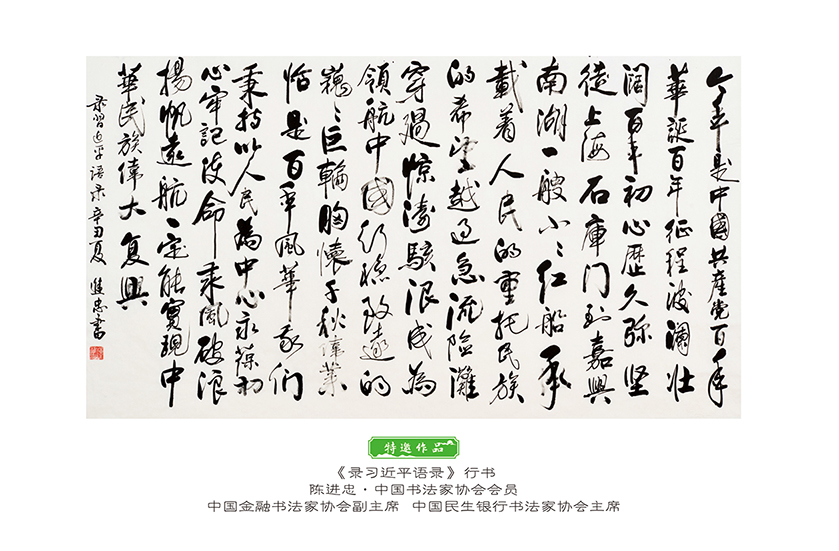 今年是中國共產党百年
華誕百年征程波澜壮
阔百年初心歷久弥坚
從上海石庫门到嘉興
南湖一艘小〻红船承
載着人民的重托民族
的希望越过急流险灘
穿過惊涛駭浪成为
領航中國行穩致遠的
巍〻巨輪胸懷千秋偉業
恰是百年風華我们
秉持以人民為中心永葆初
心牢記使命乘風破浪
揚帆遠航一定能實現中
華民族偉大复興
录習近平语录辛丑夏 進忠書
特邀作品
《录习近平语录》行书
陈进忠·中国书法家协会会员
中国金融书法家协会副主席 中国民生银行书法家协会主席